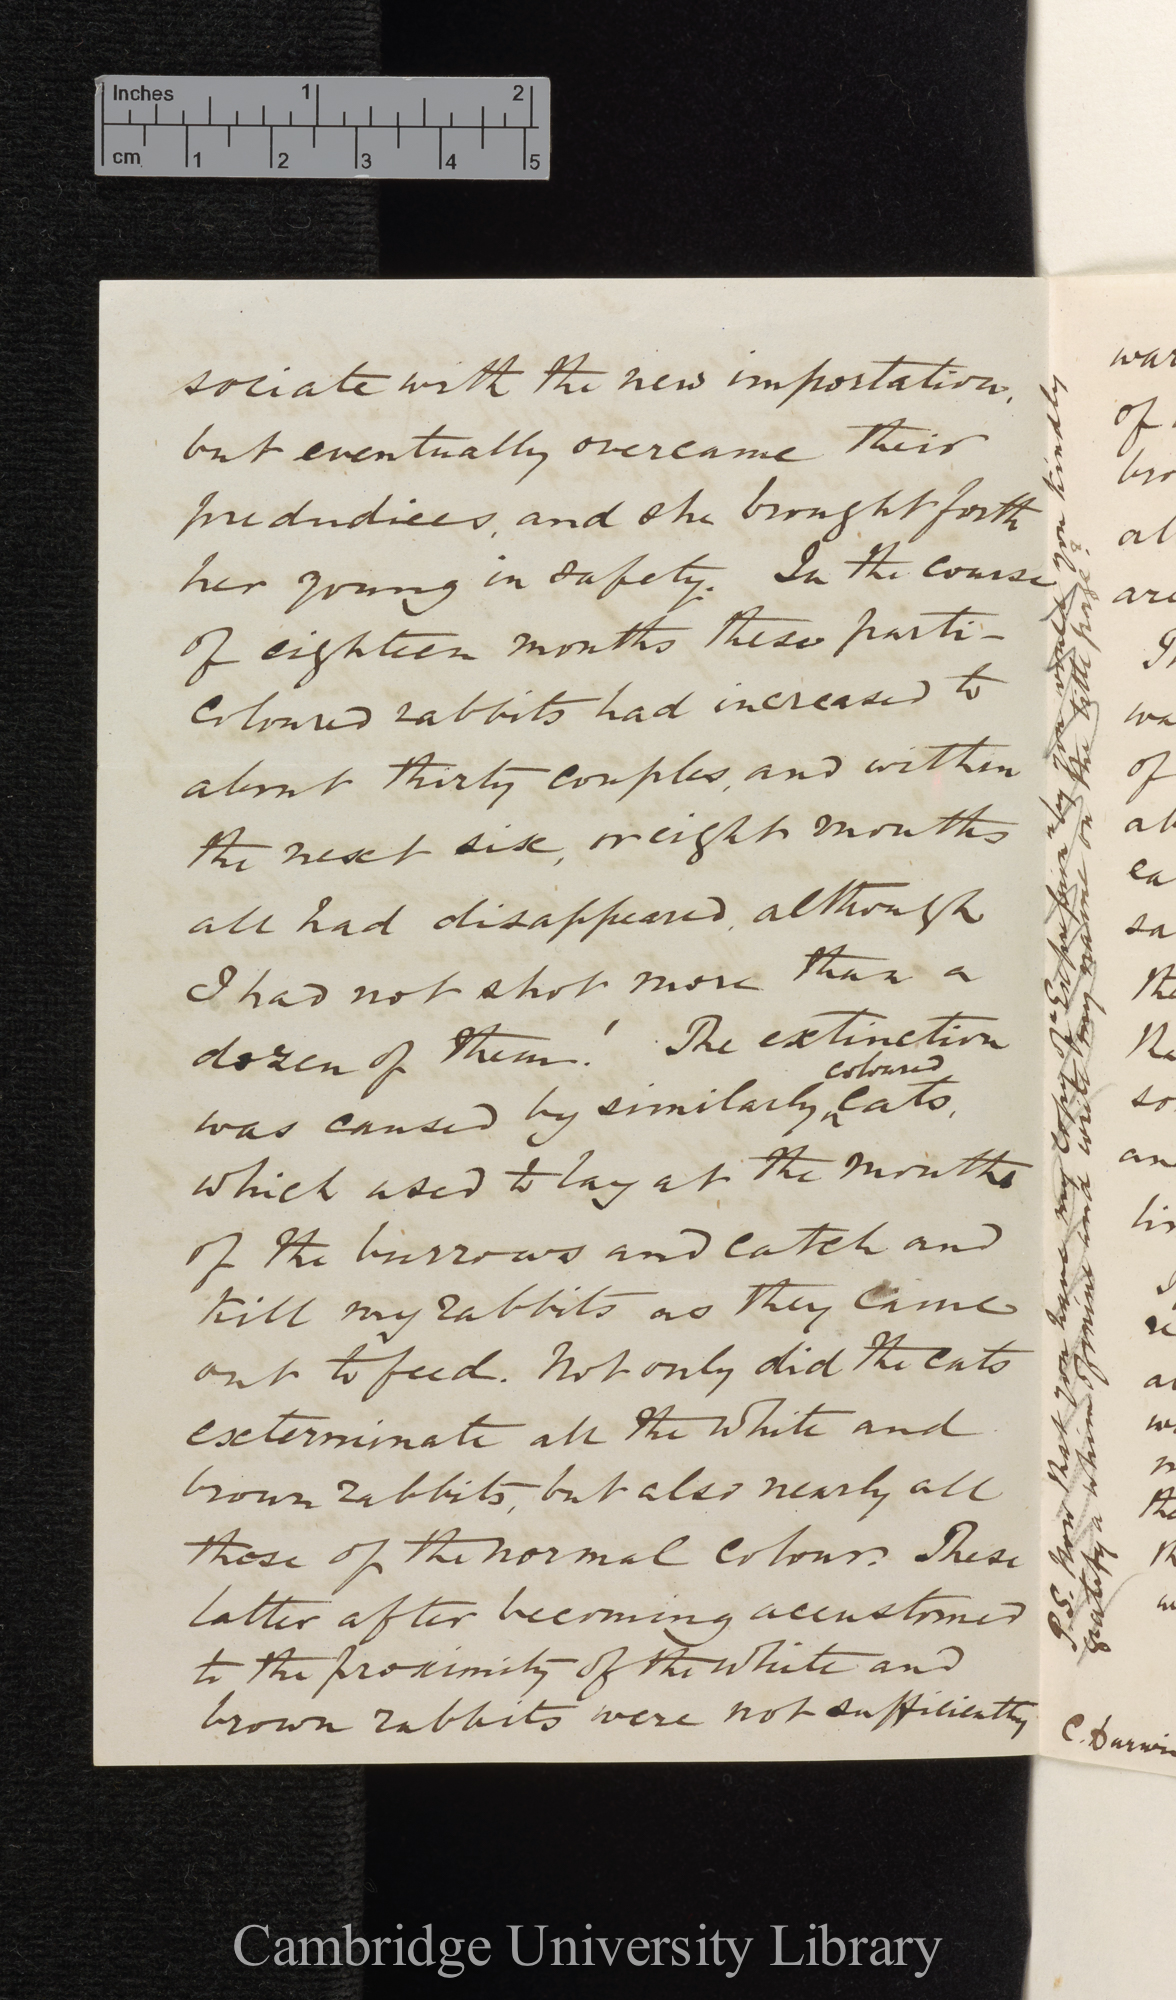 Inches 1 2
cm 1 2 3 4 5
sociate with the new importation,
but eventually overcame their
predudices, and she brought forth
her young in safety. In the course
of eighteen months these parti-
coloured rabbits had increased to
about thirty couples, and within
the next six, or eight months
all had disappeared, although
I had not shot more than a
dozen of them! The extinction
coloured
was caused by similarly cats,
which used to lay at the mouths
of the burrows and catch and
kill my rabbits as they came
out to feed. Not only did the cats
exterminate all the white and
brown rabbits, but also nearly all
those of the normal colour. These
latter after becoming accustomed
to the proximity of the white and
brown rabbits were not sufficiently
P.S. Now that you have my copy of "Expression" by you would you kindly
gratify a whim of mine and write my name on the title page?
war
of
bro
al
are
wa
of
al
ea
sa
the
so
an
C. Darwin
Cambridge University Library